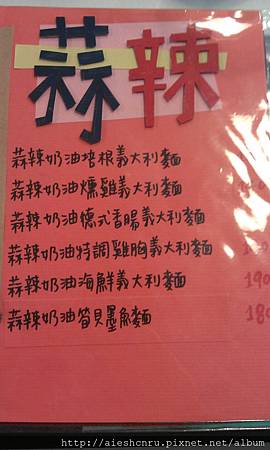 蒜辣
蒜辣奶油培根義大利麵
蒜辣奶油燻雞義大利麵
蒜辣奶油德式香腸義大利麵
蒜辣奶油特調雞胸義大利麵
蒜辣奶油海鮮義大利麵 190
蒜辣奶油筍貝墨魚麵 180
http://aieshcnru.pixnet.net/album